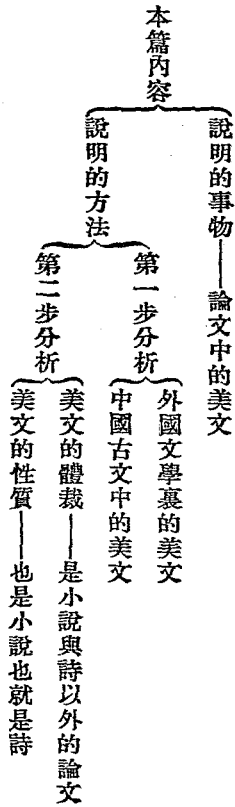 本篇內容
說明的事物——論文中的美文
說明的方法
第一步分析
外國文學裏的美文
中國古文中的美文
第二步分析
美文的體裁——是小說與詩以外的論文
美文的性質——也是小說也就是詩